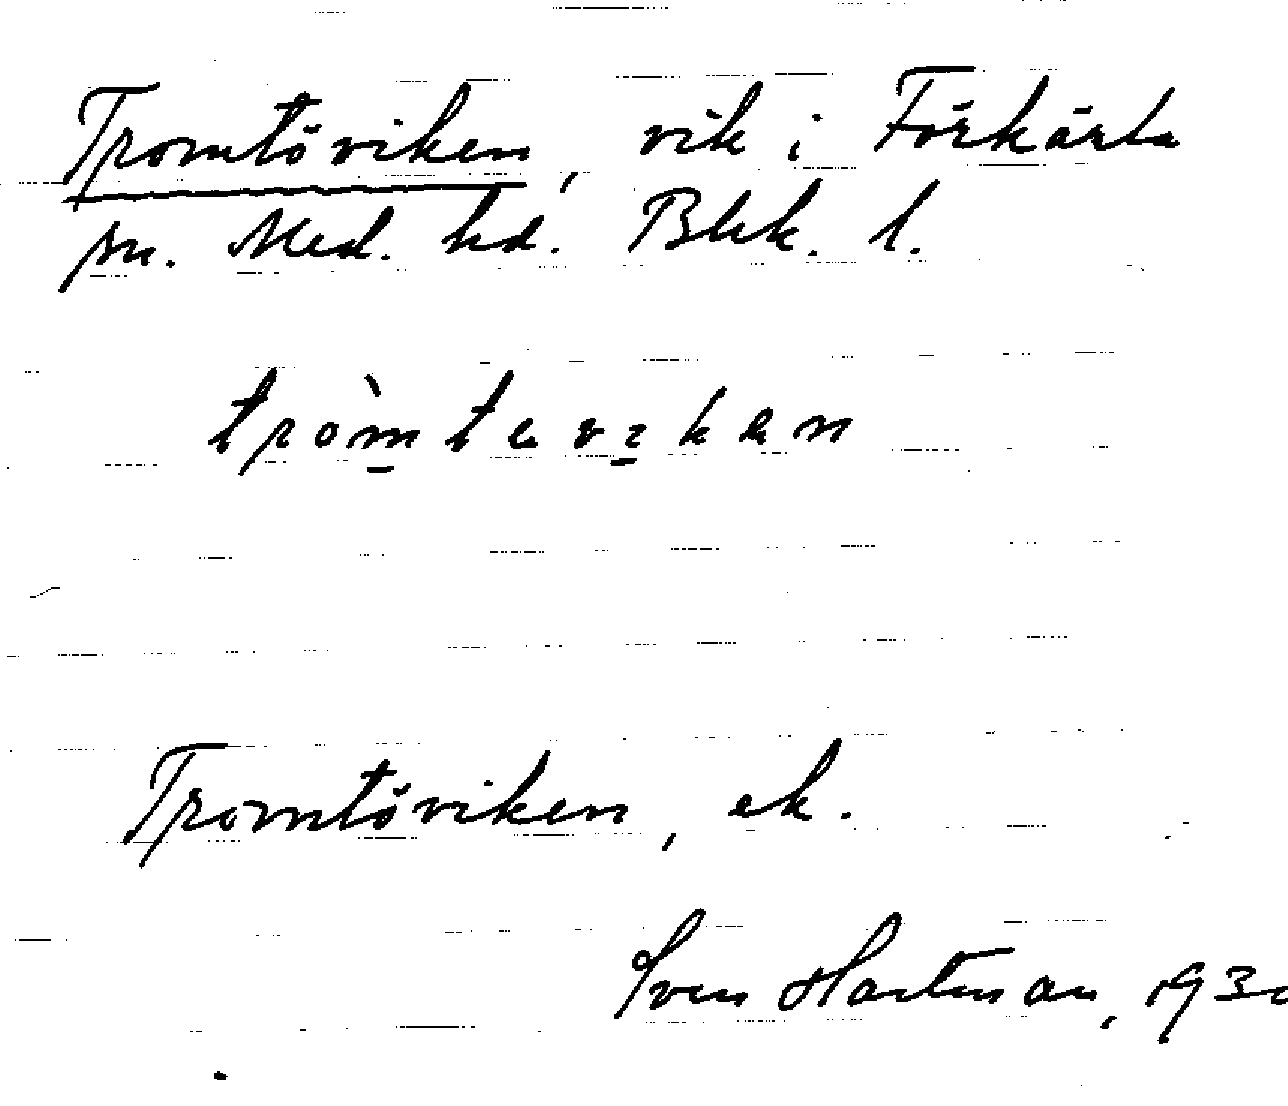 Tromtöviken, vik i Förkärla
sn. Med. hd. Blek. l.
tròmteviken
Tromtöviken, ek.
Sven Hartman, 1930